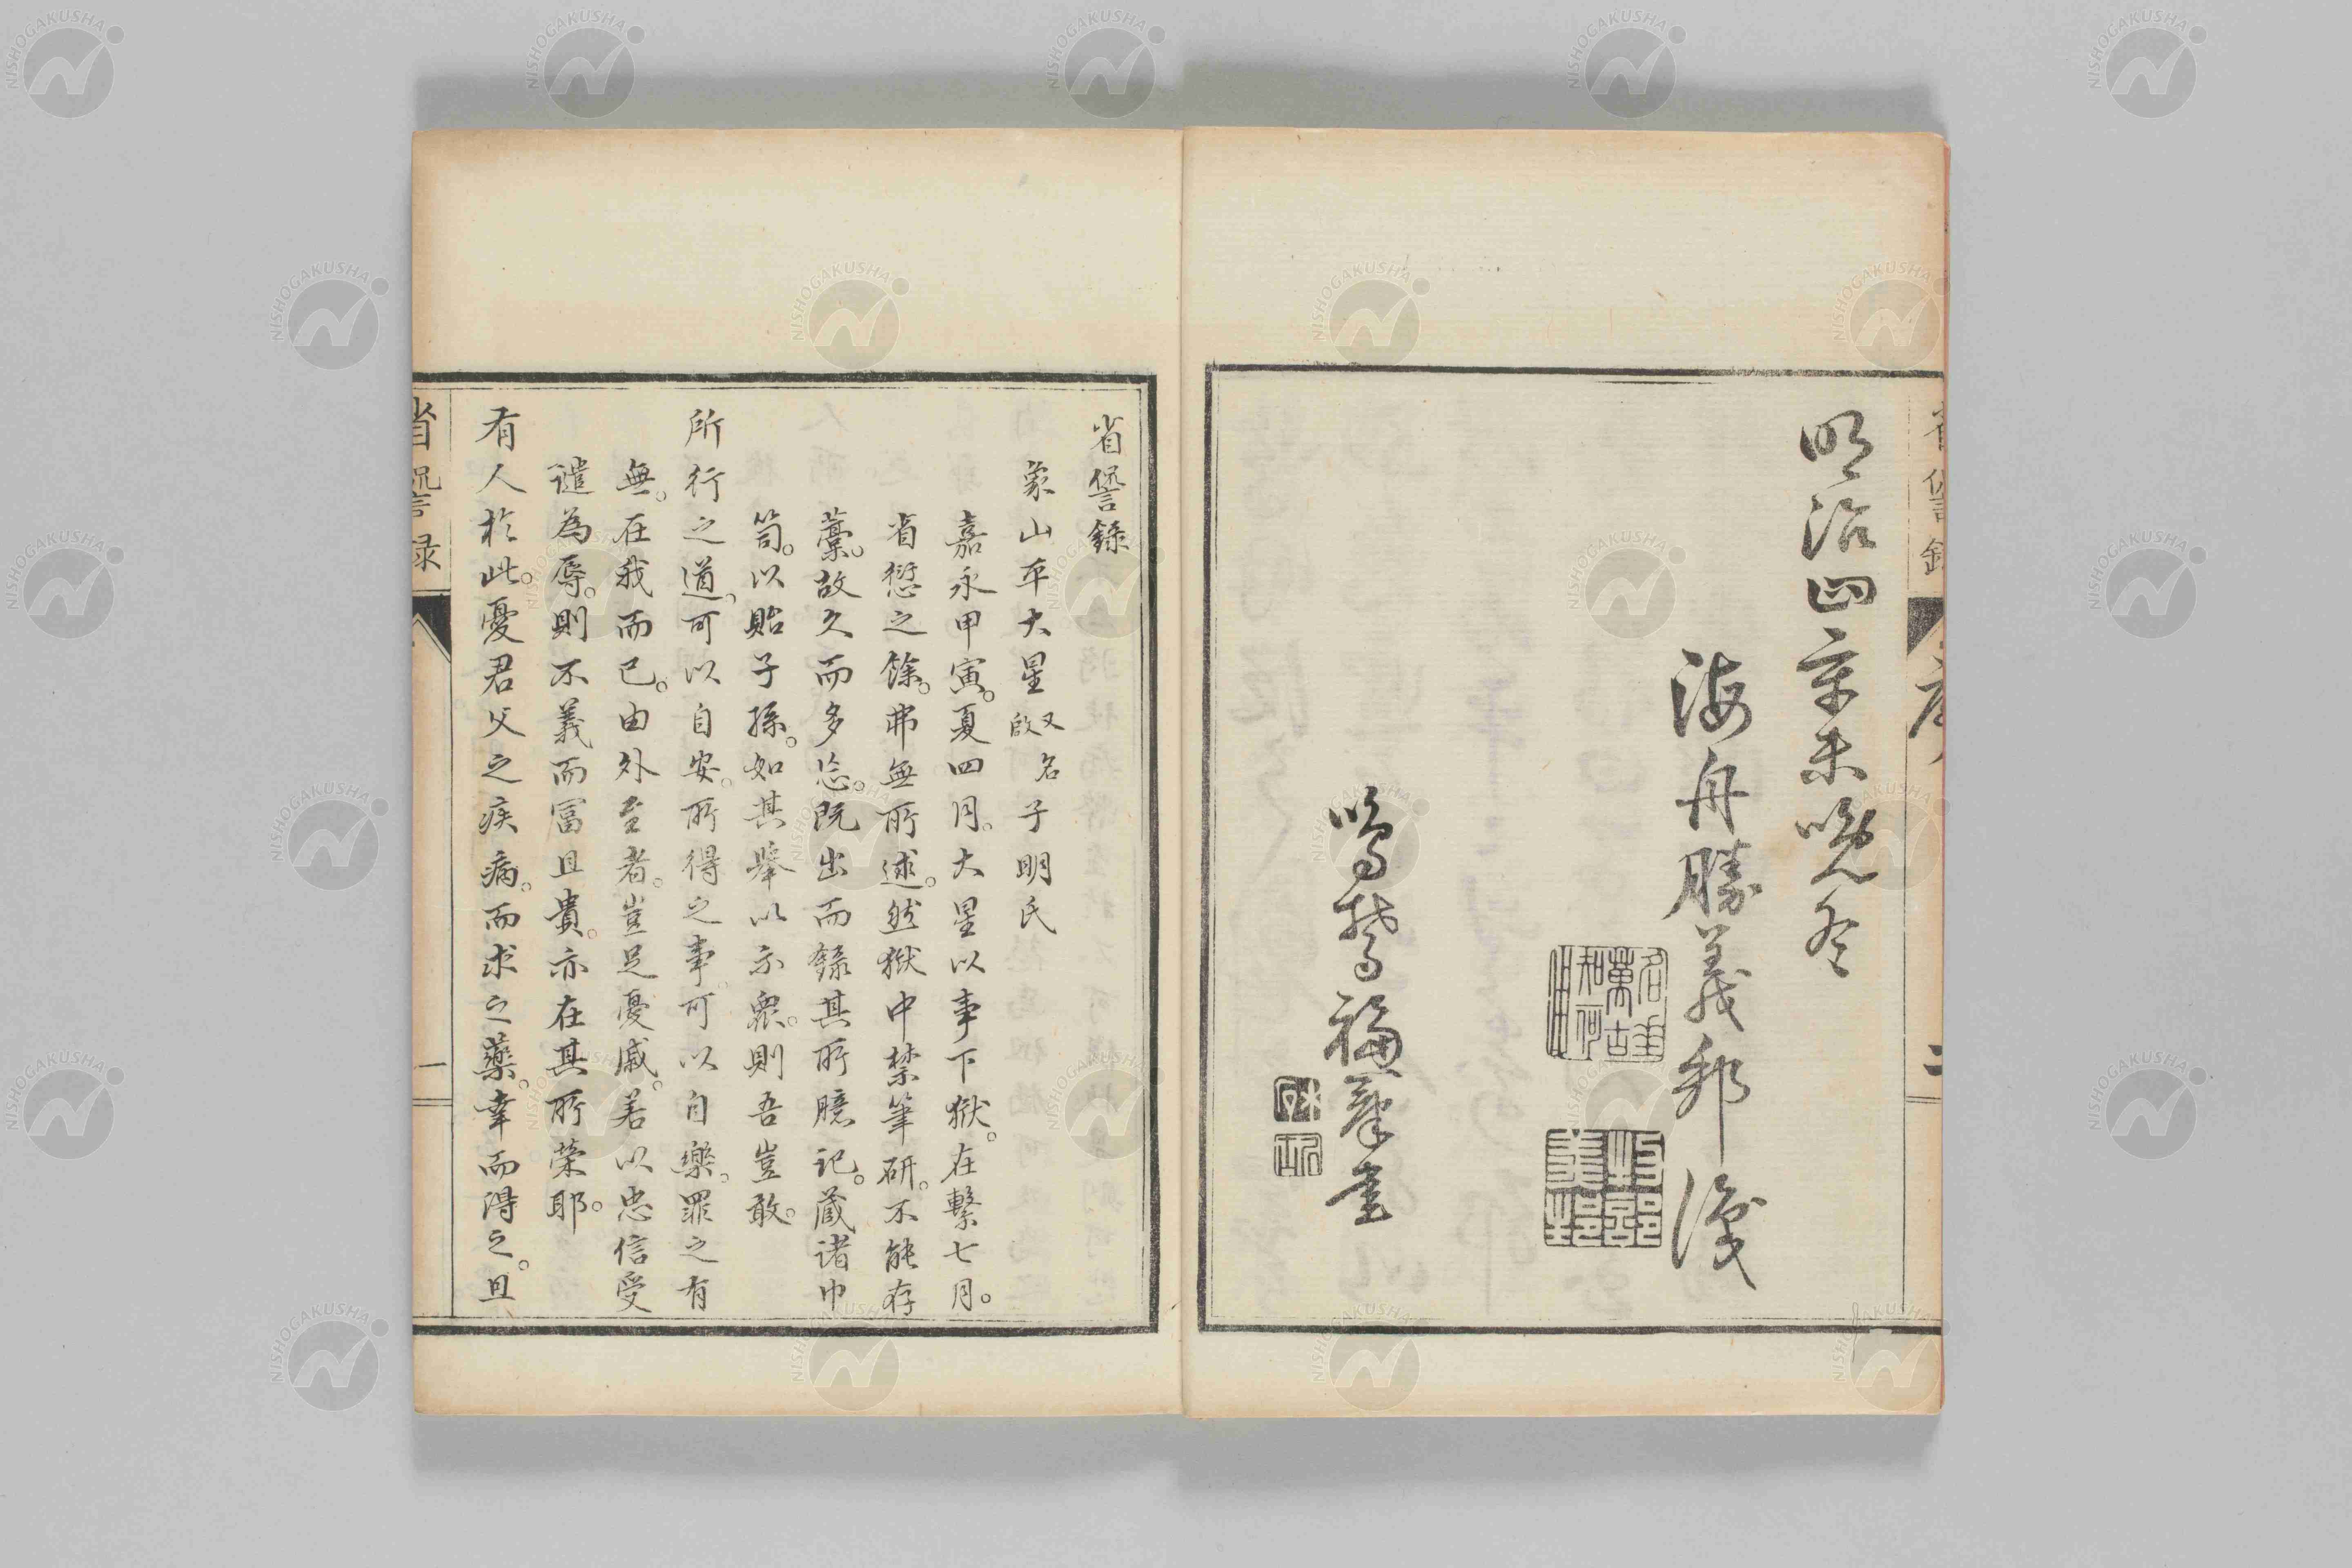 明治四辛未晚冬
海舟勝義邦識
鳴鶩福羣書
省諐錄
象山平大星 又名啟 子明氏
嘉永甲寅。夏四月。大星以事下獄。在繫七月。
省愆之餘。弗無所述。然獄中禁筆硏。不能存
藁。故久而多忘。旣出而錄其所臆記。藏諸巾
笥。以貽子孫。如其擧以示衆。則吾豈敢。
所行之道。可以自安。所得之事。可以自樂。罪之有
無。在我而已。由外至者。豈足憂戚。若以忠信受
譴為辱。則不義而冨且貴。亦在其所榮耶。
有人於此。憂君父之疾病。而求之藥。幸而得之。且
省諐録
一
NISHOGAKUSHA